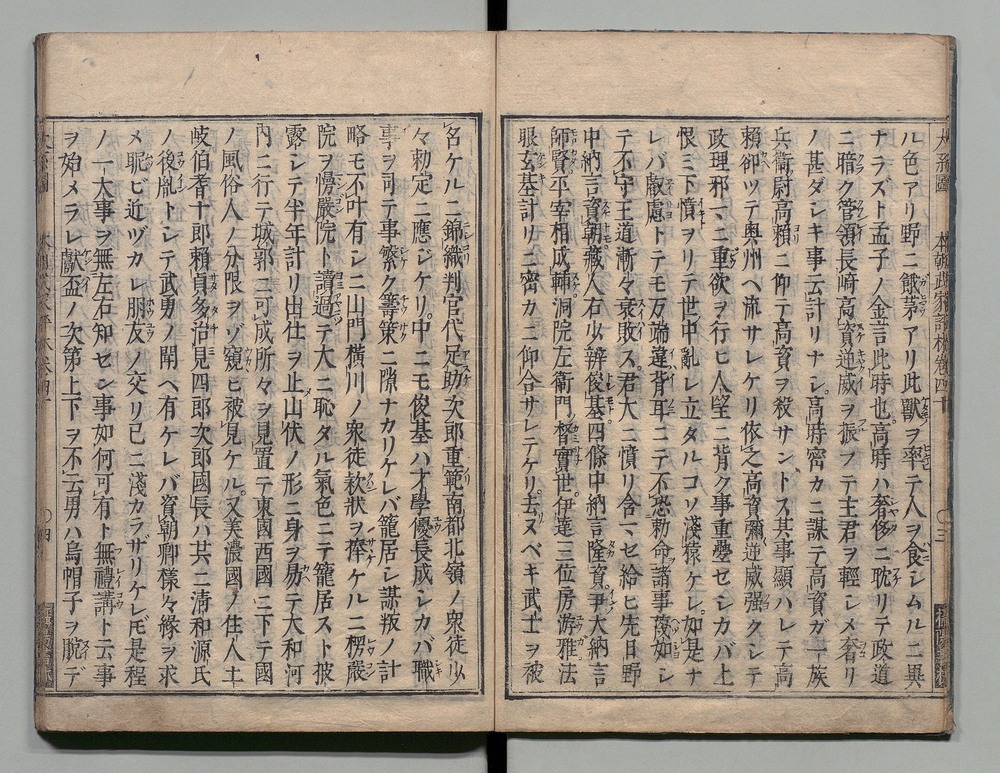 ル色アリ野ニ餓莩アリ此獸ヲ率テ人ヲ食シムルニ異
ナラズト孟子ノ金言此時也高時ハ奢侈ニ耽リテ政道
ニ暗ク管領長崎高資逆威ヲ振フテ主君ヲ輕シメ奢リ
ノ甚ダシキ事云計リナシ高時密カニ謀テ高資ガ一族
兵衞尉高頼ニ仰テ高資ヲ殺サントス其事顯ハレテ高
頼卻ツテ奥州ヘ流サレケリ依之高資彌逆威强クシテ
政理邪マニ重欲ヲ行ヒ人望ニ背ク事重疊セシカバ上
恨ミ下憤ヲリテ世中亂レ立タルコソ淺猿ケレ如是ナ
レバ叡慮トテモ万端違背耳ニテ不恐勅命諸事蔑如シ
テ不守王道漸々衰敗ス君大ニ憤リ含マセ給ヒ先日野
中納言資朝藏人右少辨俊基四條中納言隆資尹大納言
師賢平宰相成輔洞院左衞門督實世伊達三位房游雅法
眼玄基計リニ密カニ仰合サレテケリ去ヌベキ武士ヲ被
召ケルニ錦織判官代足助次郎重範南都北嶺ノ衆徒少
々勅定ニ應ジケリ中ニモ俊基ハ才學優長成シカバ職
事ヲ司テ事繁ク籌策ニ隙ナカリケレバ籠居シ謀叛ノ計
略モ不叶有シニ山門横川ノ衆徒款狀ヲ捧ケルニ楞嚴
院ヲ慢嚴院ト讀過テ大ニ恥タル氣色ニテ籠居スト披
露シテ半年計リ出仕ヲ止山伏ノ形ニ身ヲ易テ大和河
內ニ行テ城郭ニ可成所々ヲ見置テ東國西國ニ下テ國
ノ風俗人ノ分限ヲゾ窺ヒ被見ケル又美濃國ノ住人土
岐伯耆十郎賴貞多治見四郎次郎國長ハ共ニ清和源氏
ノ後胤トシテ武勇ノ聞ヘ有ケレバ資朝卿樣々緣ヲ求
メ眤ビ近ヅカレ朋友ノ交リ已ニ淺カラザリケレモ是程
ノ一大事ヲ無左右知セン事如何可有ト無禮講ト云事
ヲ始メラレ獻盃ノ次第上下ヲ不云男ハ烏帽子ヲ脫デ
四